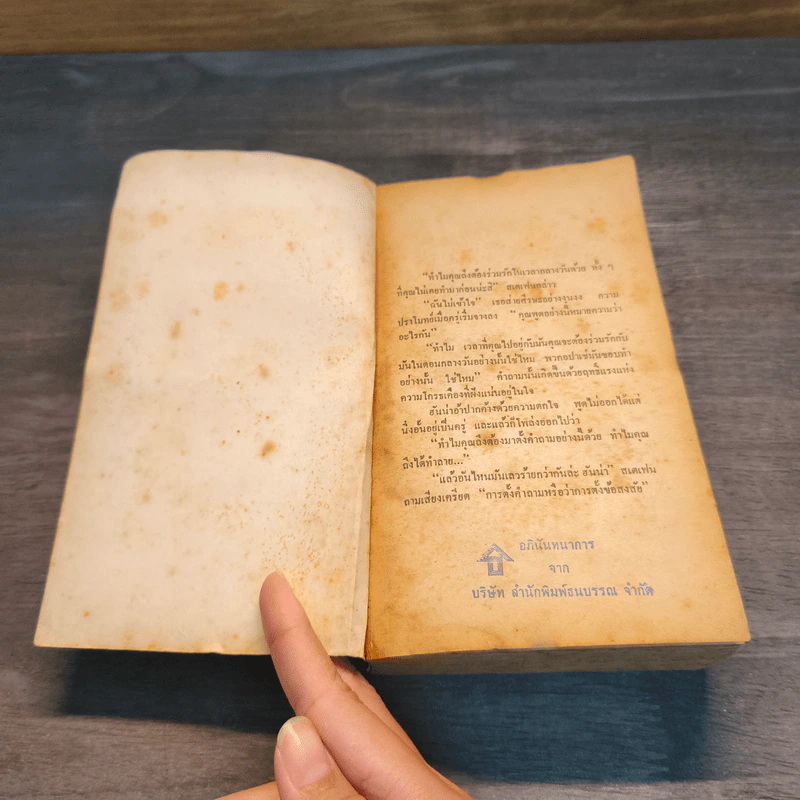 "ทำไมคุณถึงต้องร่วมรักในเวลากลางวันด้วย ทั้ง ๆ
ที่คุณไม่เคยทำมาก่อนน่ะสิ" สเตเฟนกล่าว
"ฉันไม่เข้าใจ" เธอส่ายศีรษะอย่างงุนงง ความ
ปราโมทย์เมื่อครู่เริ่มจางลง "คุณพูดอย่างนี้หมายความว่า
อะไรกัน"
"ทำไม เวลาที่คุณไปอยู่กับมันคุณจะต้องร่วมรักกับ
มันในตอนกลางวันอย่างนั้นใช่ไหม พวกอปาเช่มันชอบทำ
อย่างนั้น ใช่ไหม" คำถามนั้นเกิดขึ้นด้วยฤทธิ์แรงแห่ง
ความโกรธเคืองที่ฝังแน่นอยู่ในใจ
ฮันน่าอ้าปากค้างด้วยความตกใจ พูดไม่ออกได้แต่
นิ่งอั้นอยู่เป็นครู่ และแล้วก็โพล่งออกไปว่า
"ทำไมคุณถึงต้องมาตั้งคำถามอย่างนี้ด้วย ทำไมคุณ
ถึงได้ทำลาย..."
"แล้วอันไหนมันเลวร้ายกว่ากันล่ะ ฮันน่า" สเตเฟน
ถามเสียงเครียด "การตั้งคำถามหรือว่าการตั้งข้อสงสัย"
อภินันทนาการ
จาก
บริษัท สำนักพิมพ์ธนบรรณ จำกัด